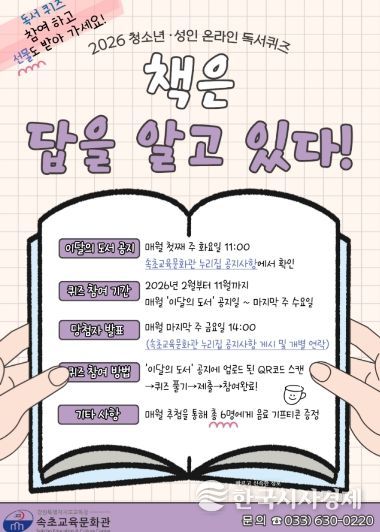 독서 퀴즈
참여 하고
선물도 받아 가세요!
2026 청소년·성인 온라인 독서퀴즈
책은
답을 알고 있다!
이달의 도서 공지 매월 첫째 주 화요일 11:00
속초교육문화관 누리집 공지사항에서 확인
퀴즈 참여 기간 2026년 2월부터 11월까지
매월 '이달의 도서' 공지일 ~ 마지막 주 수요일
당첨자 발표 매월 마지막 주 금요일 14:00
(속초교육문화관 누리집 공지사항 게시 및 개별 연락)
퀴즈 참여 방법 '이달의 도서' 공지에 업로드 된 QR코드 스캔
→퀴즈 풀기→제출→참여완료!
기타 사항 매월 추첨을 통해 총 6명에게 음료 기프티콘 증정
한국시사경제
강원특별자치도교육청
속초교육문화관
문의 ☎ 033) 630-0220